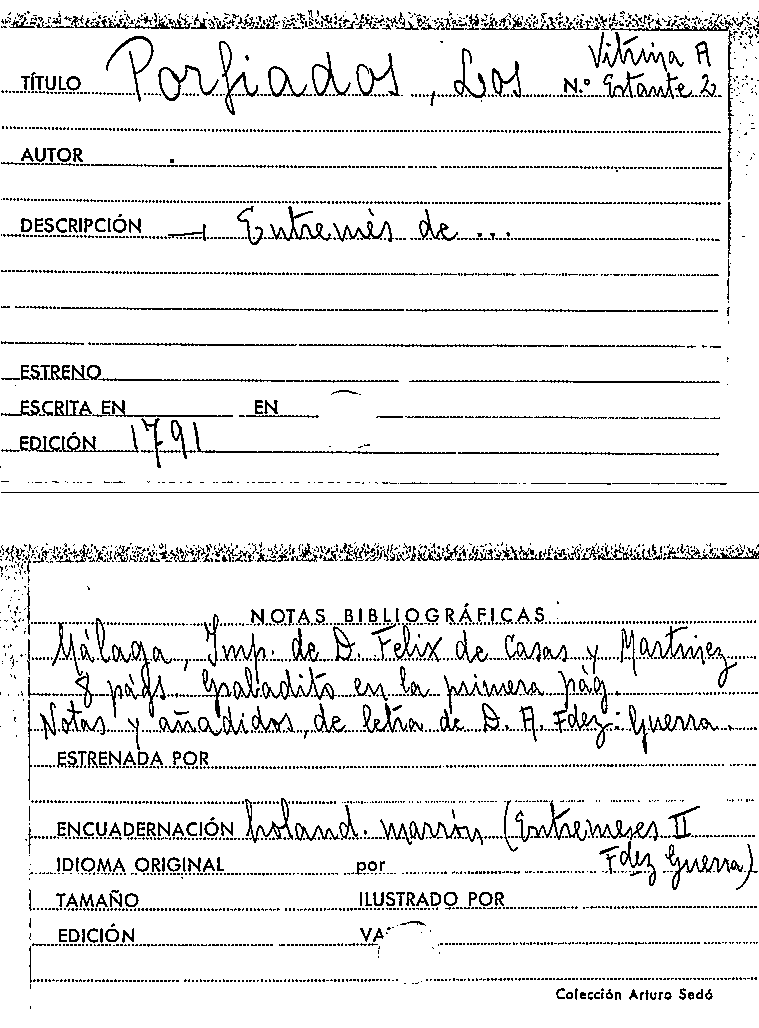 Vitrina A
TÍTULO Porfiados, Los N.º Estante 2
AUTOR .
DESCRIPCIÓN Entremés de ...
ESTRENO
ESCRITA EN EN
EDICIÓN 1791
NOTAS BIBLIOGRÁFICAS
Málaga, Imp. de D. Felix de Casas y Martinez
8 págs. Grabadito en la primera pág.
Notas y añadidos, de letra de D. A. Fdez-Guerra.
ESTRENADA POR
ENCUADERNACIÓN holand. marrón (Entremeses II
IDIOMA ORIGINAL por Fdez Guerra)
TAMAÑO ILUSTRADO POR
EDICIÓN
Colección Arturo Sedó